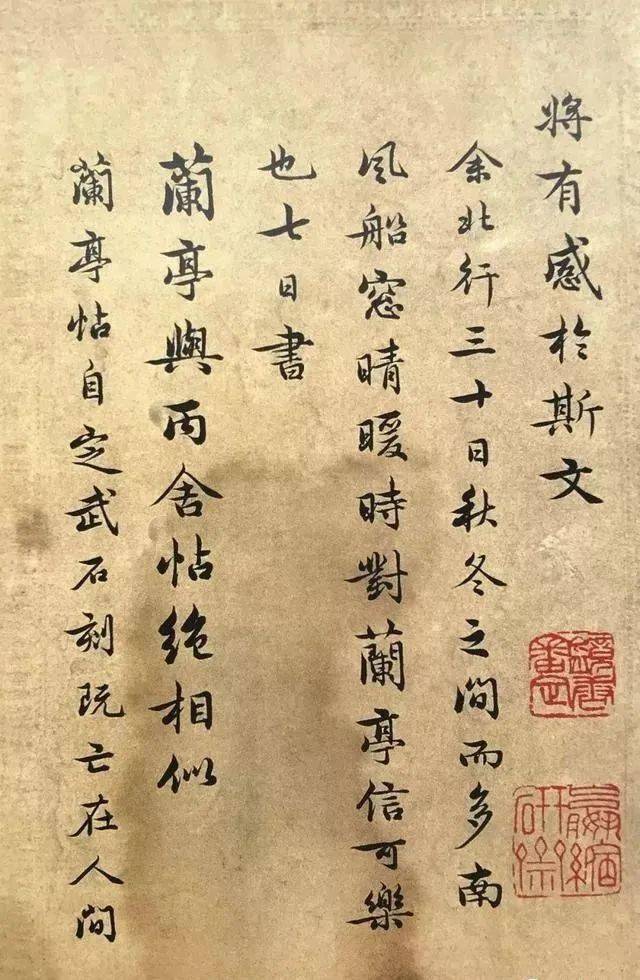 將有感於斯文
余北行三十日秋冬之間而多南
風船窓晴暖時對蘭亭信可樂
也七日書
蘭亭與丙舍帖絶相似
蘭亭帖自定武石刻既亡在人間